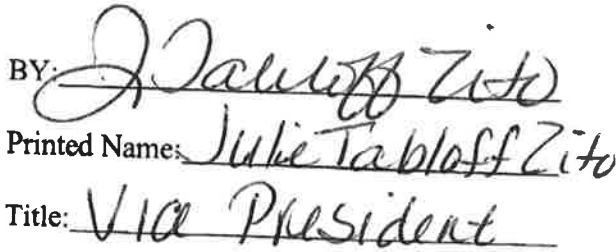 BY: J Tabloff Zito
Printed Name: Julie Tabloff Zito
Title: Vice President